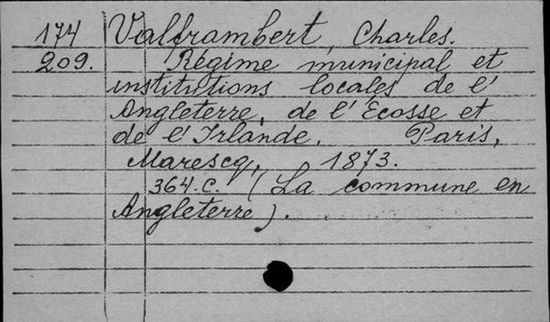 174 Valframbert, Charles.
209. Régime municipal et
institutions locales de l'
Angleterre, de l'Ecosse et
de l'Irlande. Paris,
Marescq, 1873.
364.c. (La commune en
Angleterre).